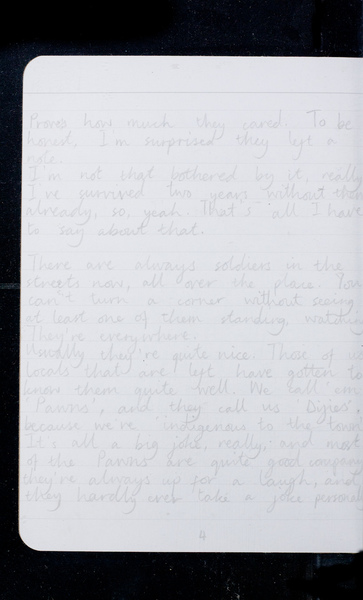 Proves how much they cared. To be
honest, I'm surprised they left a
note.
I'm not that bothered by it, really
I've survived two years without them
already, so, yeah. That's all I have
to say about that.
There are always soldiers in the
streets now, all over the place. You
can't turn a corner without seeing
at least one of them standing, watching
They're everywhere.
Usually they're quite nice. Those of us
locals that are left have gotten to
know them quite well. We call 'em
'Pawns', and they call us 'Digies',
because we're indigenous to the town.
It's all a big joke, really, and most
of the Pawns are quite good company
they're always up for a laugh, and
they hardly ever take a joke persona
4